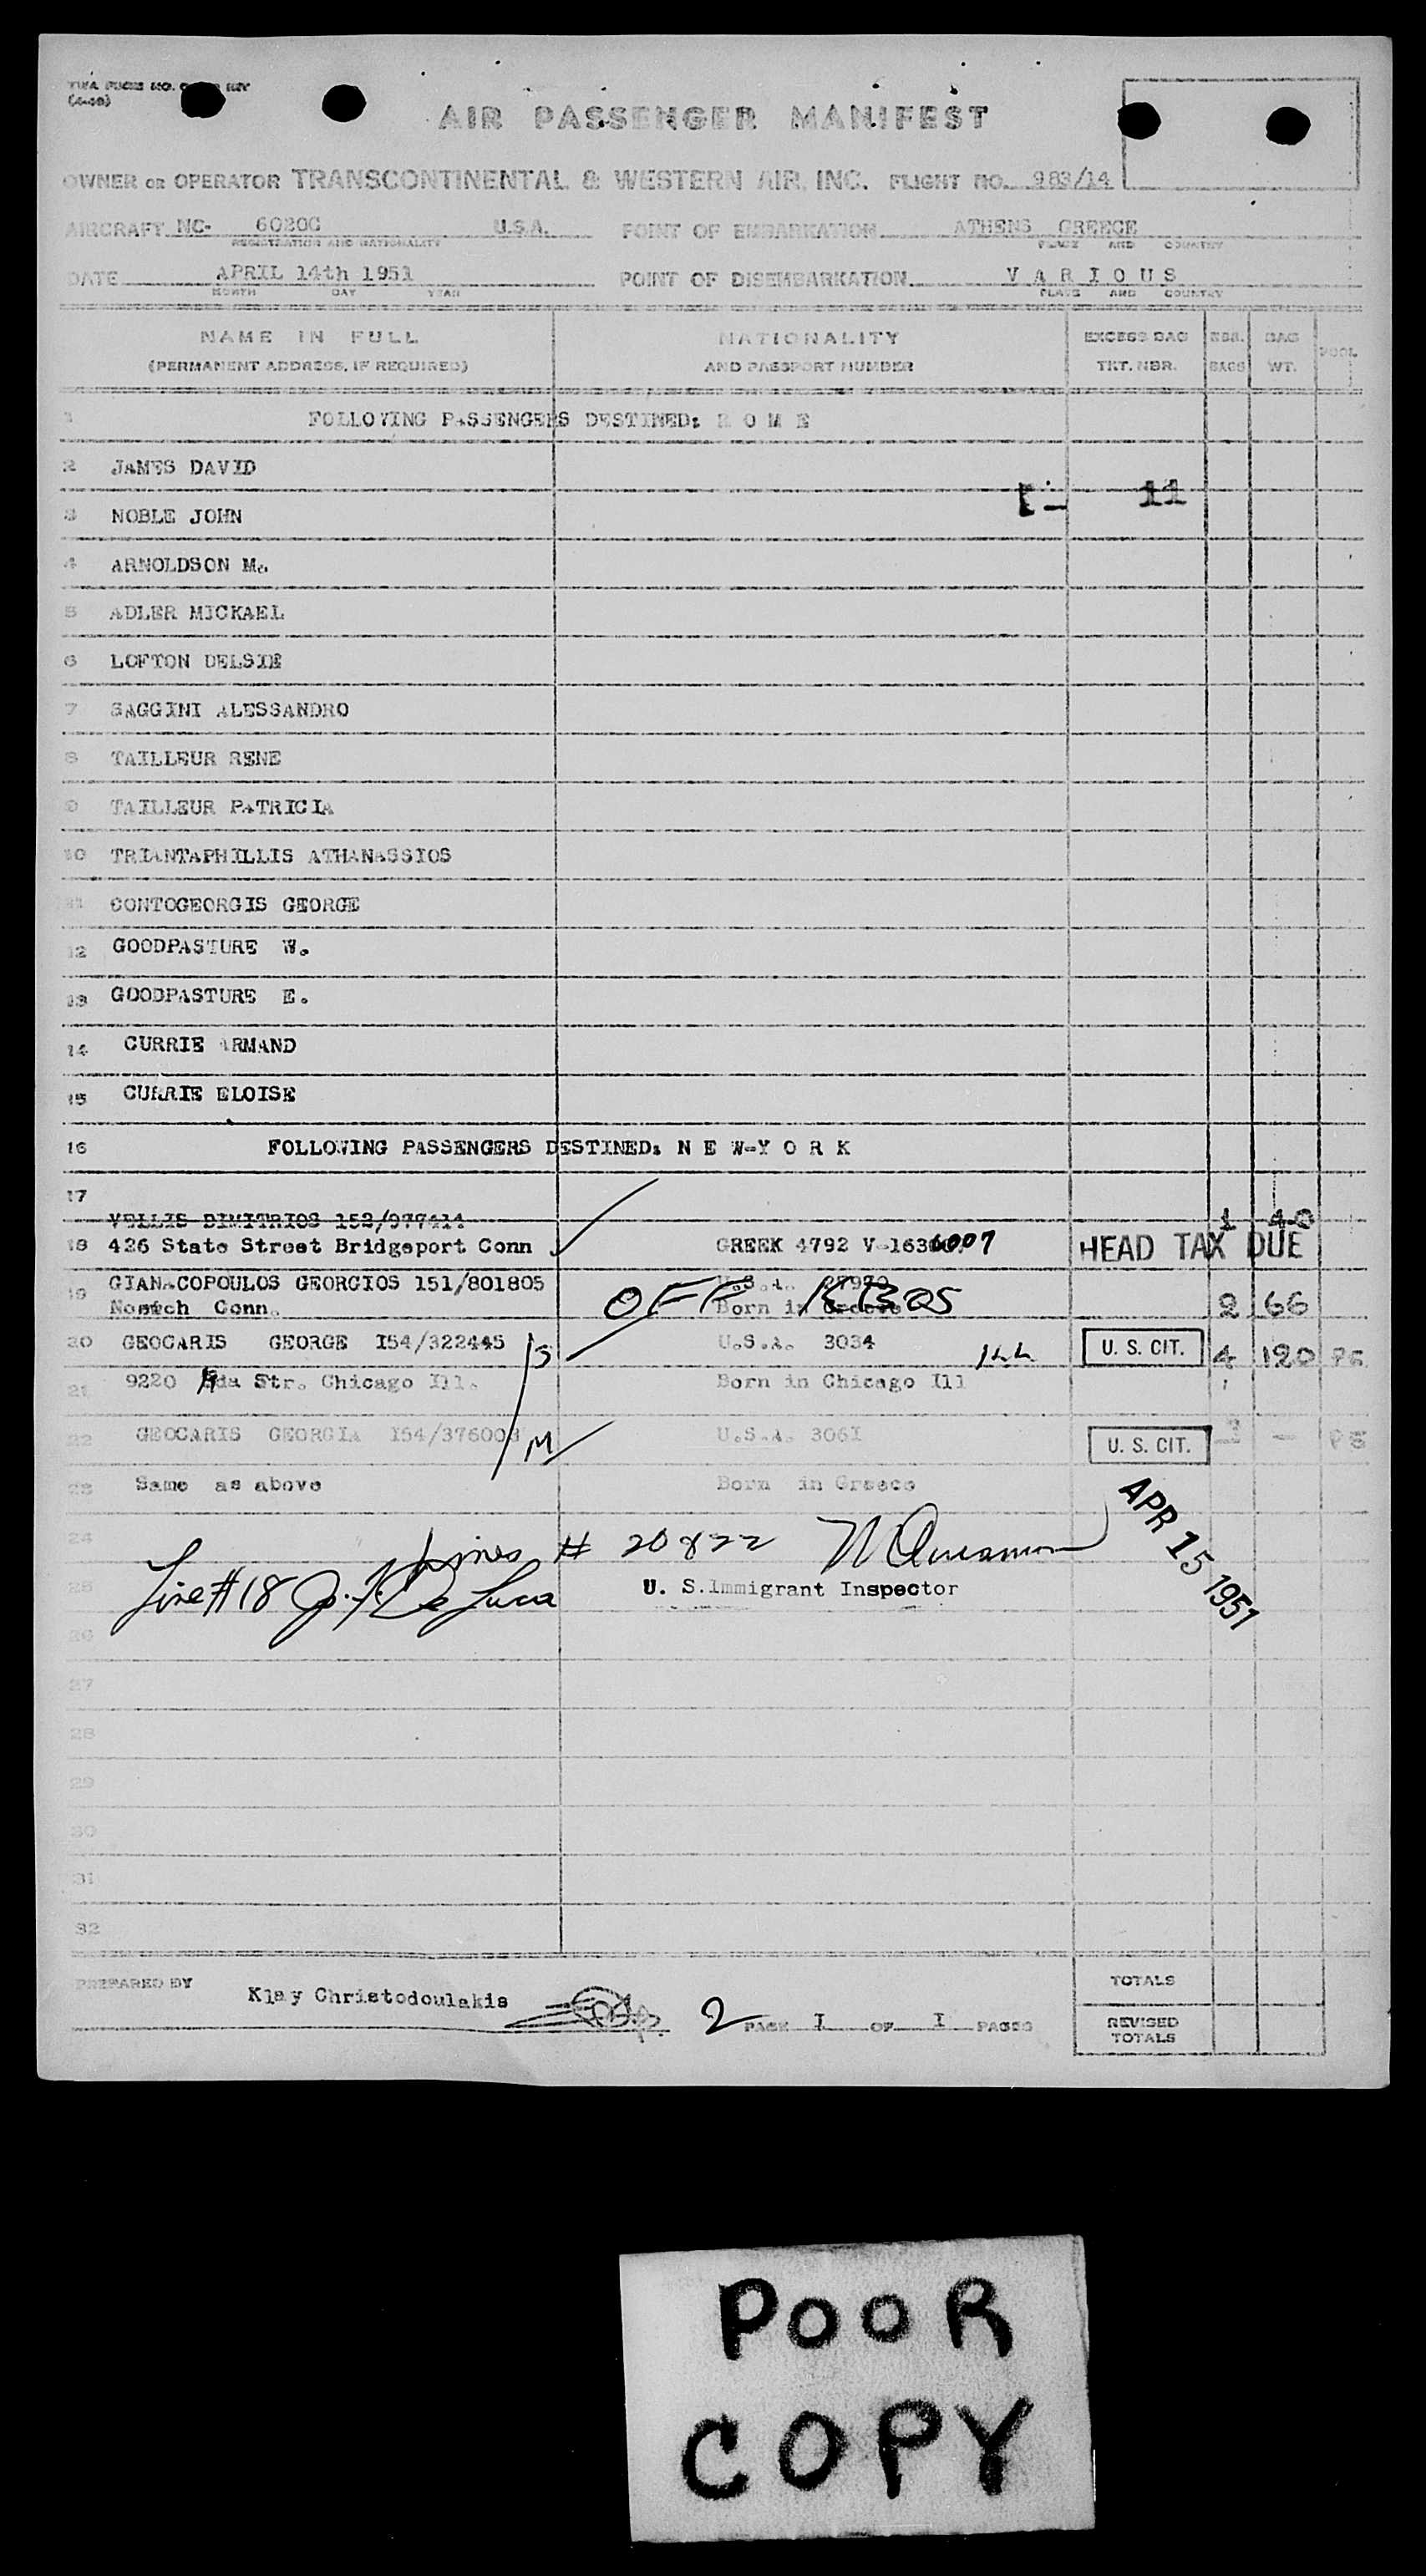 (4-49)
AIR PASSENGER MANIFEST
OWNER OR OPERATOR TRANSCONTINENTAL & WESTERN AIR, INC. FLIGHT NO. 983/14
AIRCRAFT NC- 6020C U.S.A. POINT OF EMBARKATION ATHENS GREECE
REGISTRATION AND NATIONALITY PLACE AND COUNTRY
DATE APRIL 14th 1951 POINT OF DISEMBARKATION V A R I O U S
MONTH DAY YEAR PLACE AND COUNTRY
NAME IN FULL NATIONALITY EXCESS BAG NBR. BAG POOL
(PERMANENT ADDRESS, IF REQUIRED) AND PASSPORT NUMBER TKT. NBR. BAGS WT.
1 FOLLOWING PASSENGERS DESTINED: R O M E
2 JAMES DAVID
11
3 NOBLE JOHN
4 ARNOLDSON M.
5 ADLER MICKAEL
6 LOFTON DELSIE
7 SAGGINI ALESSANDRO
8 TAILLEUR RENE
9 TAILLEUR PATRICIA
10 TRIANTAPHILLIS ATHANASSIOS
11 CONTOGEORGIS GEORGE
12 GOODPASTURE W.
13 GOODPASTURE E.
14 CURRIE ARMAND
15 CURRIE ELOISE
16 FOLLOWING PASSENGERS DESTINED: N E W-Y O R K
17
VELLIS DIMITRIOS 152/977414 1 40
18 426 State Street Bridgeport Conn GREEK 4792 HEAD TAX DUE
19 GIANACOPOULOS GEORGIOS 151/801805 U.S.A.
Conn. OFF Born in Greece 2 66
20 GEOCARIS GEORGE I54/322445 S U.S.A. 3034 U. S. CIT. 4 120
21 9220 Str. Chicago Ill. Born in Chicago Ill
22 GEOCARIS GEORGIA I54/376003 M U.S.A. 306I U. S. CIT. -
23 Same as above Born in Greece
APR 15 1951
24 Lines # 20 & 22
25 Line # 18 J. F. De Luca U. S. Immigrant Inspector
26
27
28
29
30
31
32
PREPARED BY Klay Christodoulakis 2 PAGE I OF I PAGES
TOTALS
REVISED
TOTALS
POOR
COPY